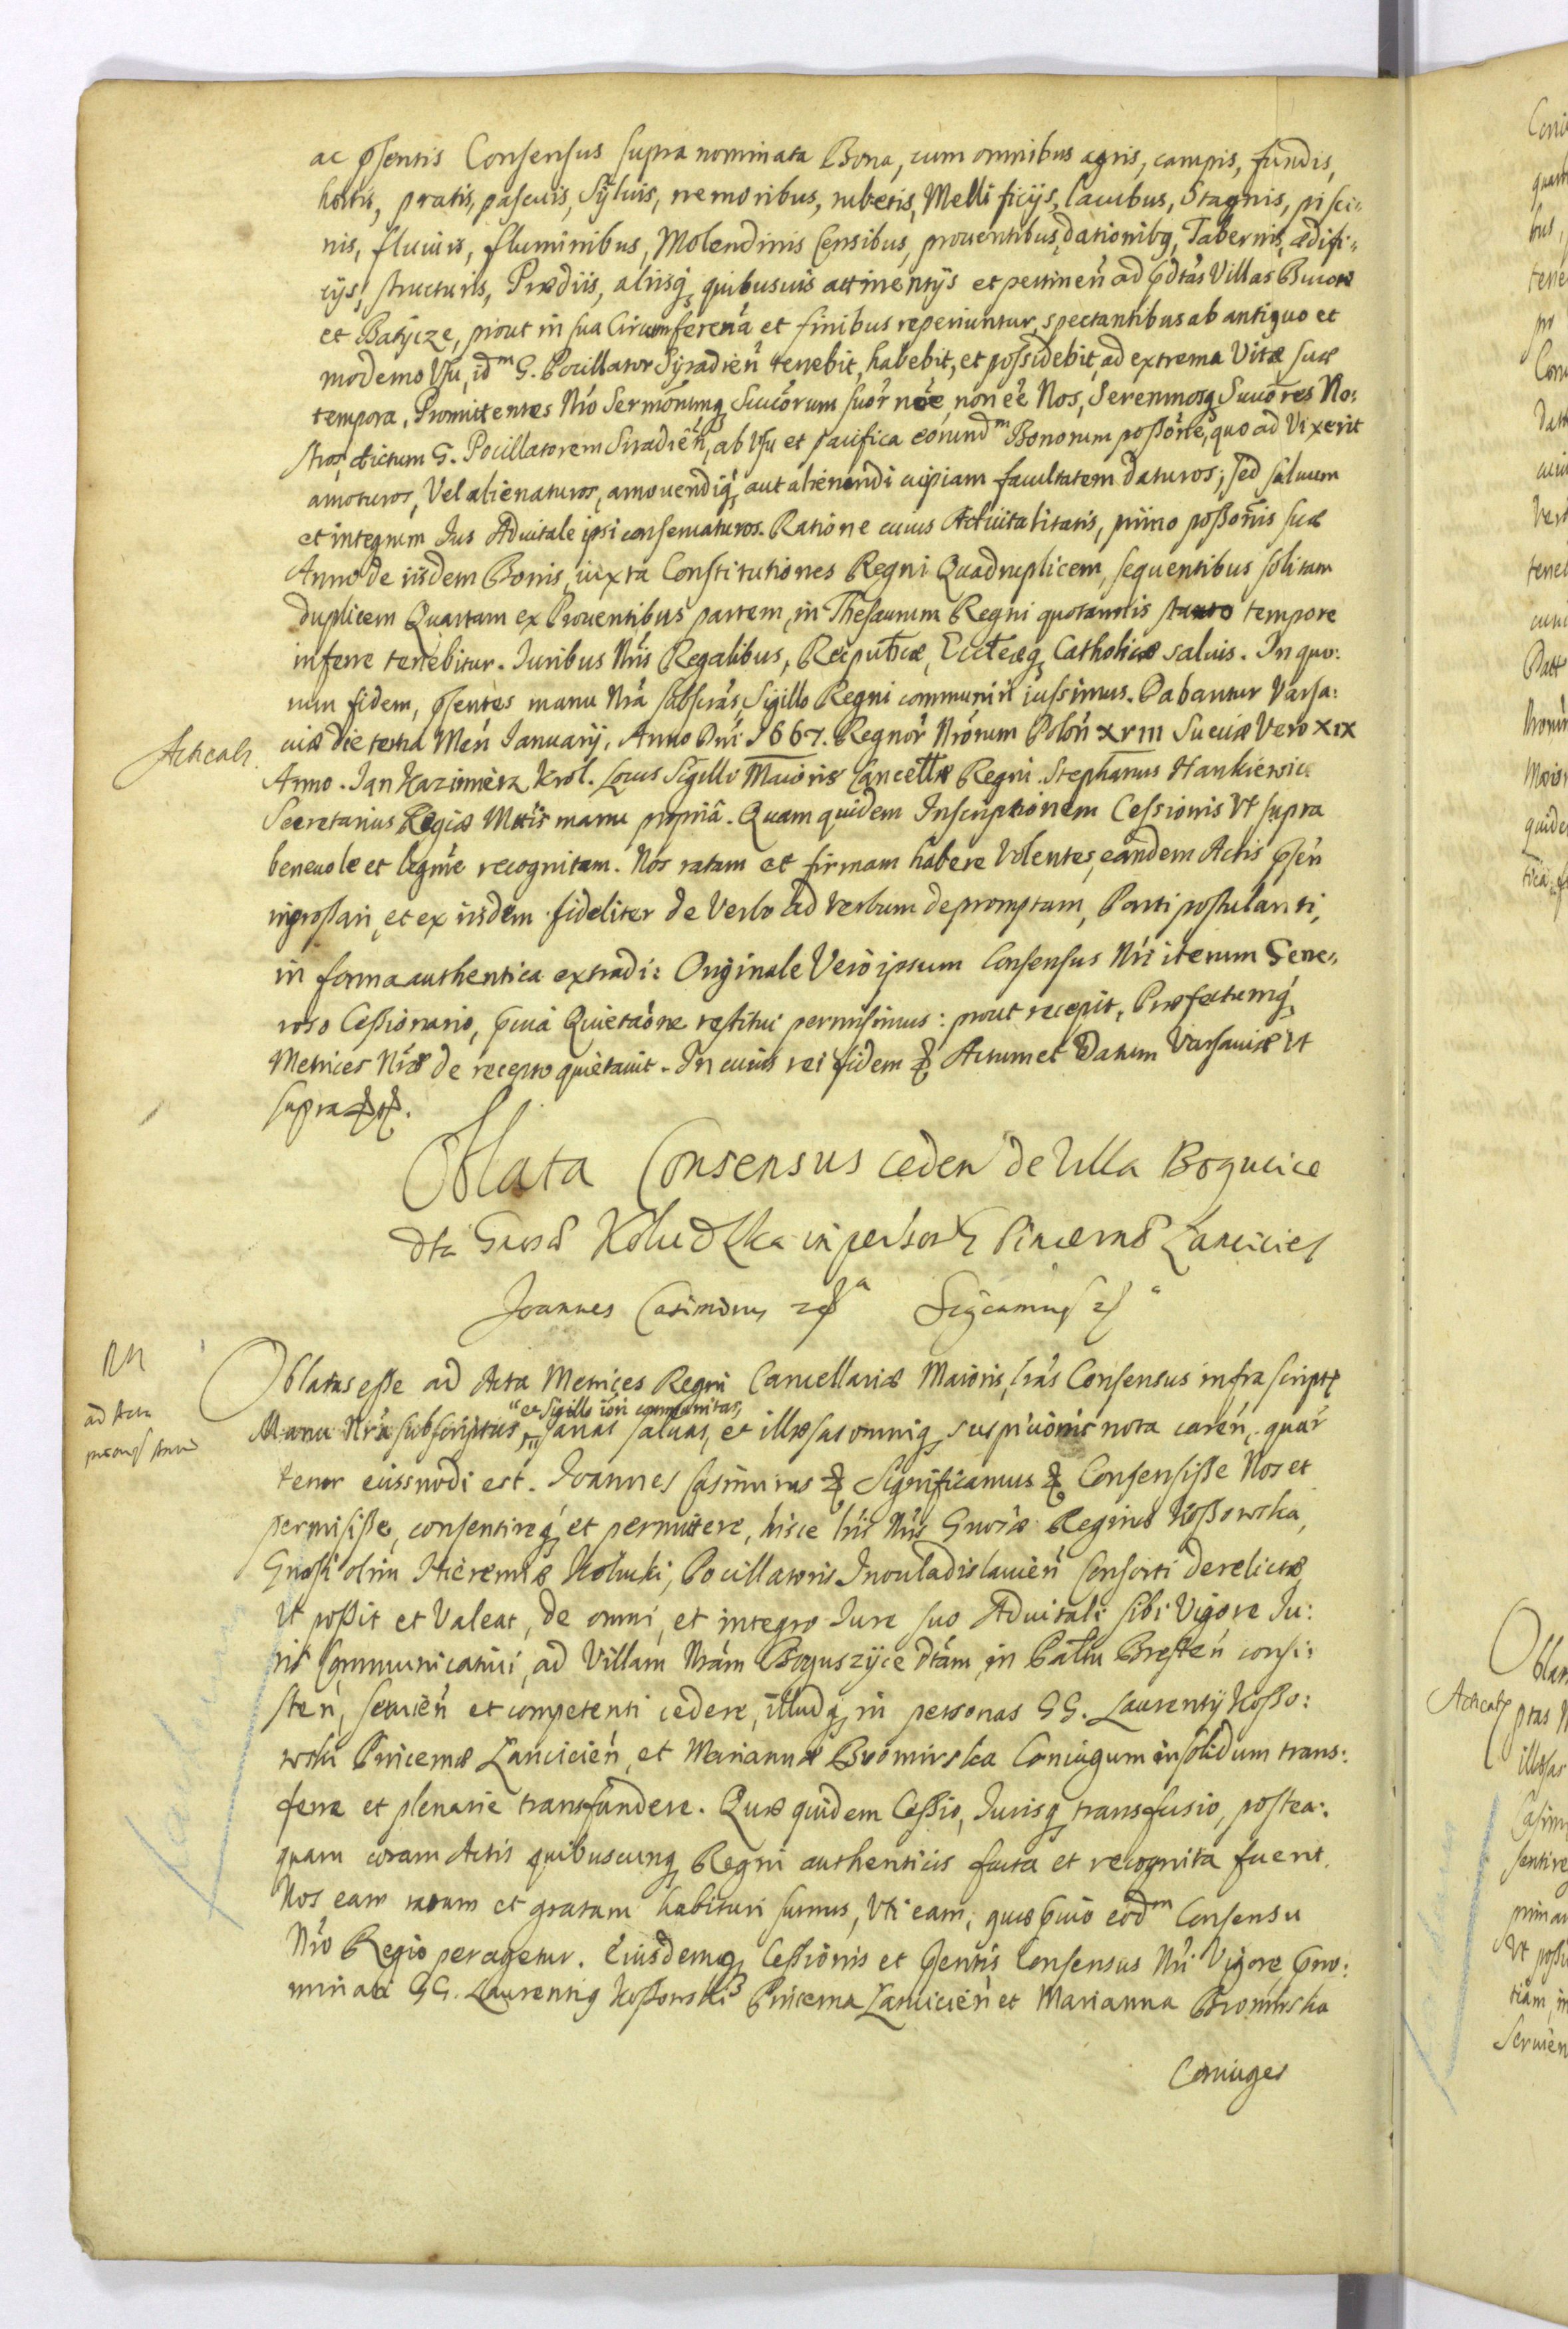 ac psentis Consensus supra nominata Bona, cum omnibus agris, campis, fundis,
hortis, pratis, pascuis, Syluis, nemoribus, rubetis, Mellificijs, lacubus, Stagnis, pisci:
nis, fluuiis, fluminibus, Molendinis Censibus, prouentibus, dationibq, Tabernis, ædifi:
cijs, structuris, Prædiis, aliisq quibusuis attinentijs et pertinen ad pdtas Villas
et Batycze, prout in sua Circumferena et finibus reperiuntur, spectantibus ab antiquo et
moderno Vsu, idm G. Pocillator Syradien tenebit, habebit, et possidebit, ad extrema Vitæ suæ
tempora. Promittentes Nro Sermorumq Succorum suor noe, non ee Nos, Serenmosq Succores No:
stros, dictum G. Pocillatorem Siradien, ab Vsu et pacifica eorundm Bonorum possone, quo ad Vixerit
amoturos, Vel alienaturos, amouendiq aut alienandi cuipiam facultatem daturos; sed saluum
et integrum Ius Aduitale ipsi conseruaturos. Ratione cuius Aduitalitatis, primo possonis suæ
Anno de iisdem Bonis, iuxta Constitutiones Regni Quadruplicem, sequentibus solitam
duplicem Quartam ex Prouentibus partem, in Thesaurum Regni quotannis tempore
inferre tenebitur. Iuribus Nris Regalibus, Reiputicæ, Eccleæq Catholicæ saluis. In quo:
rum fidem, psentes manu Nra subscras, Sigillo Regni communiri iussimus. Dabantur Varsa:
uiæ die tertia Men Ianuarij, Anno Dni 1667. Regnor Nrorum Polon XVIII Sueciæ Vero XIX
Acticatr.
Anno. Jan Kazimierz Krol. Locus Sigilli Maioris Cancellæ Regni. Stephanus Hankiewicz
Secretarius Regiæ Mttis manu propriâ. Quam quidem Inscriptionem Cessionis Vt supra
beneuole et legme recognitam. Nos ratam et firmam habere Volentes, eandem Actis psen
ingrossari, et ex iisdem fideliter de Verbo ad Verbum depromptam, Parti postulanti,
in forma authentica extradi: Originale Vero ipsum Consensus Nri iterum Gene:
roso Cessionario, pcuia Quietaone restitui permisimus: prout recepit, Præfectumq
Metrices Nræ de recepto quietauit. In cuius rei fidem & Actum et Datum Varsauiæ Vt
supra &&.
Oblata Consensus ceden de Villa Bogucice
dta Gnosæ Koludzka in personā Pincernæ Lanciciens
Joannes Casimirus Significamus
NN
ad Acta
Oblatas esse ad Acta Metrices Regni Cancellariæ Maioris, lras Consensus infrascripti
Manu Nra subscriptas, et Sigillo iori communitas, sanas saluas, et illæsas omniq suspicionis nota caren, quar
tenor eiusmodi est. Ioannes Casimirus & Significamus & Consensisse Nos et
permisisse, consentireq et permittere, hisce lris Nris Gnosæ Reginæ Kossowska,
Gnosi olim Hieremiæ Koluski, Pocillatoris Inouladislauien Consorti derelictæ
Vt possit et Valeat, de omni, et integro Iure suo Aduitali sibi Vigore Iu:
ris Communicatiui, ad Villam Nram Boguszyce dtam, in Pallu Bresten consi:
sten, seruien et competenti cedere, illudq in personas GG. Laurentij Kosso:
wski Pincernæ Lancicien, et Mariannæ Bromirska Coniugum insolidum trans:
ferre et plenarie transfundere. Quæ quidem Cessio, Iurisq transfusio, postea:
quam coram Actis quibuscunq Regni authenticis facta et recognita fuerit.
Nos eam ratam et gratam habituri sumus, Vti eam, quæ pcuio eodm Consensu
Nro Regio peragetur. Eiusdemq Cessionis et psentis Consensus Nri Vigore pno:
minati GG. Laurentig Kossowski Pincerna Lancicien et Marianna Bromirska
Coniuges